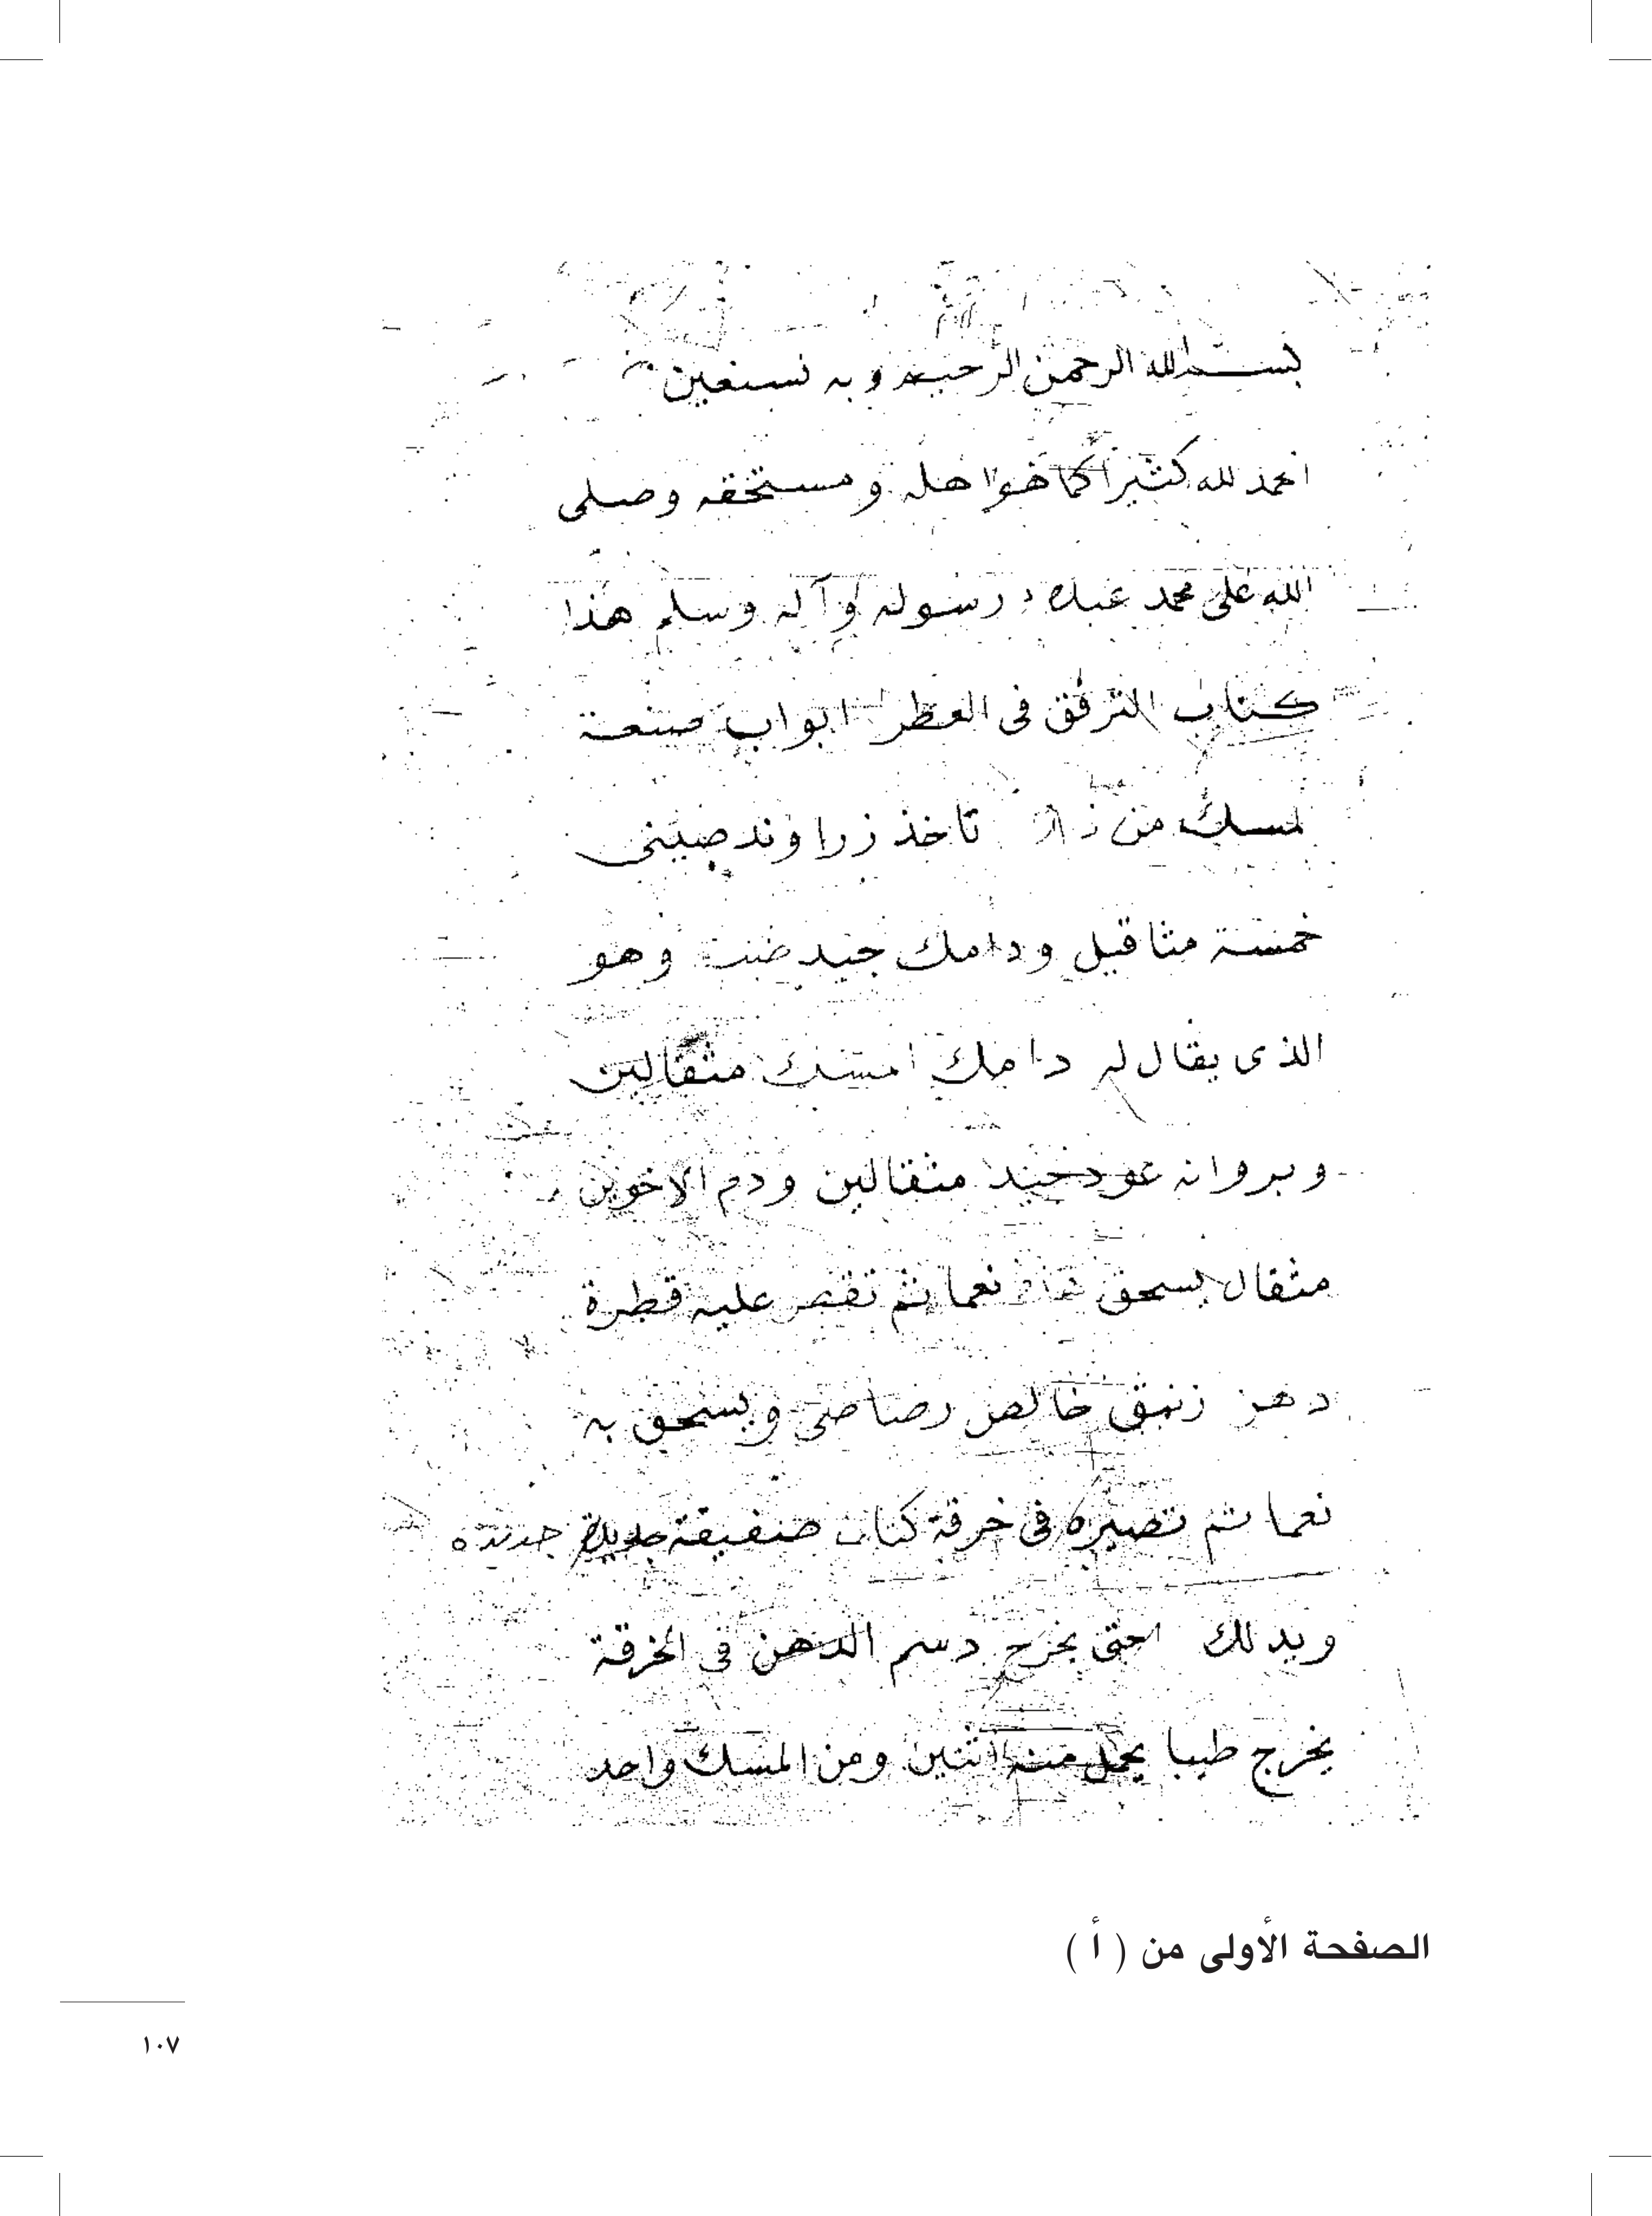 بسم الله الرحمن الرحيم وبه نستعين
الحمد لله كثيرا كما هو اهله ومستحقه وصلى
الله على محمد عبده ورسوله وآله وسلم هذا
كتاب الترفق فى العطر ابواب صنعة
لمسك من تاخذ زراوند صينى
خمسة مثاقيل ودامك جيد وهو
الذى يقال له دامك امسك مثقالين
وبروانه عود جيد مثقالين ودم الاخوين
مثقال يسحق نعما ثم تقطر عليه قطرة
دهن زنبق خالص رصاصى ويسحق به
نعما ثم تصيره فى خرقة كتان صفيقة جديدة جديده
ويدلك حتى يخرج دسم الدهن فى الخرقة
يخرج طيبا يحمل منه اثنين ومن المسك واحد
الصفحة الأولى من ( أ )
١٠٧